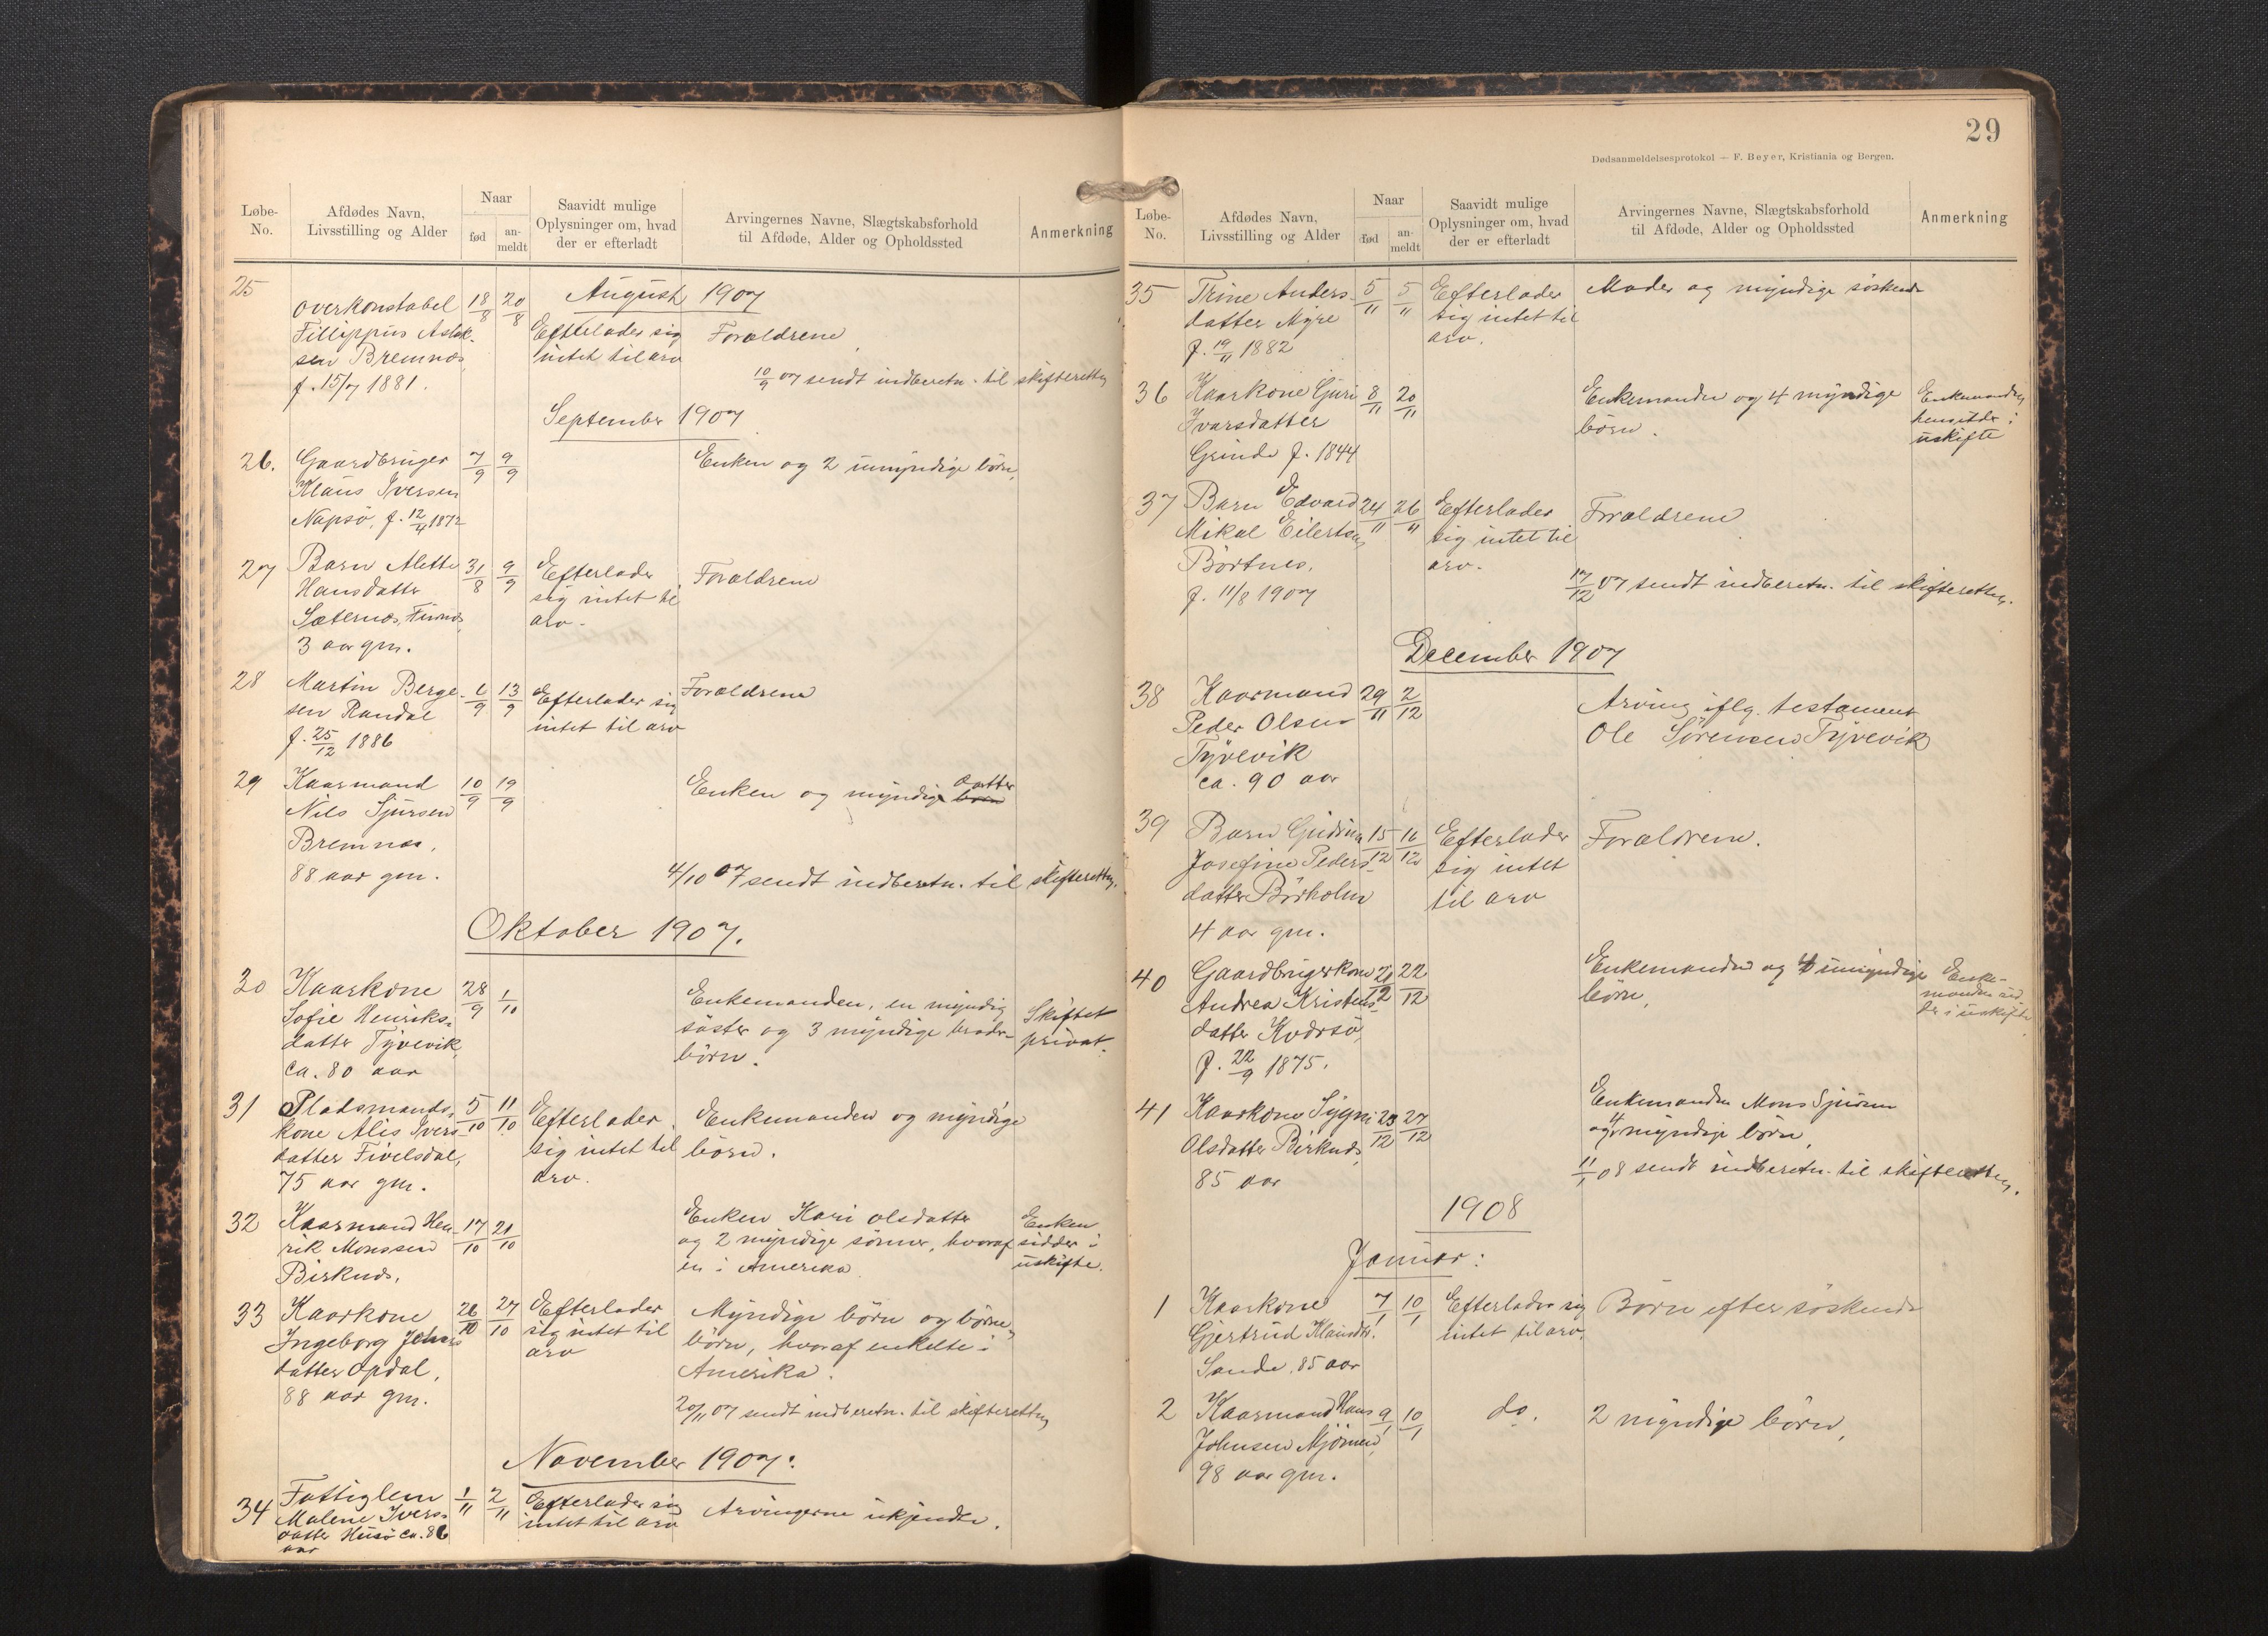 Løbe-No.
Afdødes Navn, Livsstilling og Alder
Naar
fød
an-meldt
Saavidt mulige Oplysninger om, hvad der er efterladt
Arvingernes Navne, Slægtskabsforhold til Afdøde, Alder og Opholdssted
Anmerkning
August 1907
25
Overkonstabel
18/8
20/8
Fillippus Aslak-
Efterlader sig
Forældrene
sen Bremnæs
intet til arv
f. 15/7 1881.
10/9 07 sendt indberetn. til skifteretten
September 1907
26.
Gaardbruger
7/9
9/9
Enken og 2 umyndige børn,
Klaus Iversen
Napsø, f. 12/4 1872
27
Barn Alette
31/8
9/9
Efterlader
Forældrene
Hansdatter
sig intet til
Sæternæs,
arv.
3 aar gm.
28
Martin Berge-
6/9
13/9
Efterlader sig
Forældrene
sen Randal
intet til arv
f. 25/12 1886
29
Kaarmand
10/9
19/9
Enken og myndige datter
Nils Sjursen
Bremnæs,
88 aar gm.
4/10 07 sendt indberetn. til skifteretten.
Oktober 1907.
30
Kaarkone
28/9
1/10
Enkemanden, en myndig
Skiftet
Sofie Henriks-
søster og 3 myndige broder-
privat.
datter Tyvevik,
børn.
ca. 80 aar
31
Pladsmands-
5/10
11/10
Efterlader
Enkemanden og myndige
kone Alis Ivers-
sig intet til
børn.
datter Fivelsdal,
arv.
75 aar gm.
32
Kaarmand Hen-
17/10
21/10
Enken Kari Olsdatter
Enken
rik Monssen
og 2 myndige sønner, hvoraf
sidder i
Birknes,
en i Amerika
uskifte.
33
Kaarkone
26/10
27/10
Efterlader
Myndige børn og børne-
Ingeborg Johans
sig intet til
børn, hvoraf enkelte i
datter Opdal,
arv
Amerika.
88 aar gm.
20/11 07 sendt indberetn. til skifteretten
November 1907:
34
Fattiglem
1/11
2/11
Efterlader sig
Arvingerne ukjendte.
Malene Ivers-
intet til arv
datter Husø ca. 86
aar
29
Dødsanmeldelsesprotokol — F. Beyer, Kristiania og Bergen.
Løbe-No.
Afdødes Navn, Livsstilling og Alder
Naar
fød
an-meldt
Saavidt mulige Oplysninger om, hvad der er efterladt
Arvingernes Navne, Slægtskabsforhold til Afdøde, Alder og Opholdssted
Anmerkning
35
Trine Anders-
5/11
5/11
Efterlader
Moder og myndige søskende
datter Myre
sig intet til
f. 19/11 1882
arv.
36
Kaarkone Guri
8/11
20/11
Enkemanden og 4 myndige
Enkemanden
Ivarsdatter
børn.
hensidder i
Grinde f. 1844
uskifte
37
Barn Edvard
24/11
26/11
Efterlader
Forældrene
Mikal Eilertsen
sig intet til
Børtnes,
arv.
f. 11/8 1907
17/12 07 sendt indberetn. til skifteretten.
December 1907
38
Kaarmand
29/11
2/12
Arving iflg. testament
Peder Olsen
Ole Sørensen Tyvevik
Tyvevik
ca. 90 aar
39
Barn Gudrina
15/12
16/12
Efterlader
Forældrene.
Josefine Peders-
sig intet
datter Børholm
til arv
4 aar gm.
40
Gaardbrugerkone
21/12
22/12
Enkemanden og 4 umyndige
Enke-
Andrea Kristens-
børn,
manden sid-
datter Kversø,
der i uskifte
f. 22/9 1875.
41
Kaarkone Sygni
23/12
27/12
Enkemanden Mons Sjursen
Olsdatter Birknes
og 4 myndige børn,
85 aar
11/1 08 sendt indberetn. til skifteretten.
1908
Januar:
1
Kaarkone
7/1
10/1
Efterlader sig
Børn efter søskende
Gjertrud Klausdtr.
intet til arv.
Sande, 85 aar
2
Kaarmand Hans
9/1
10/1
do.
2 myndige børn,
Johnsen Mjømen,
98 aar gm.